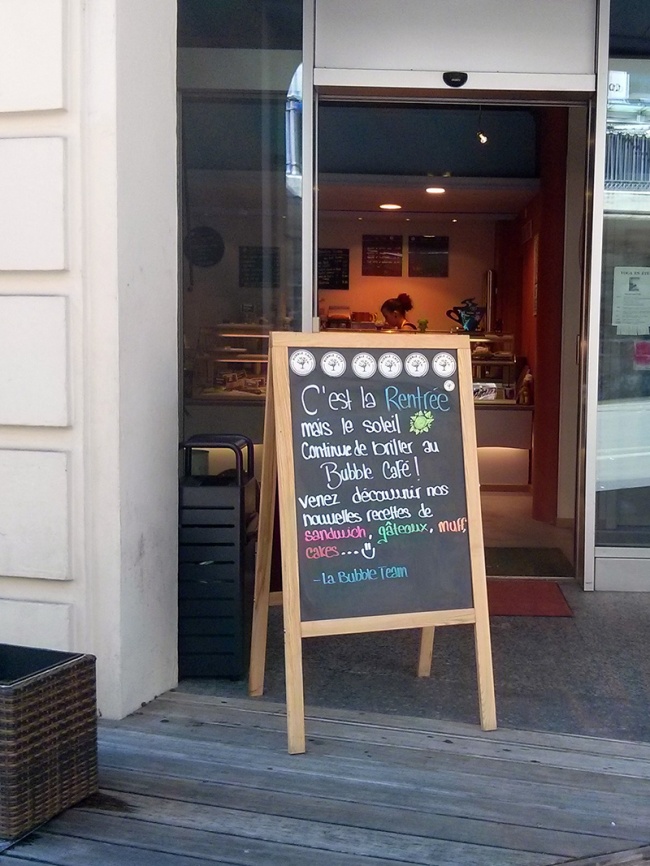 C'est la Rentrée
mais le soleil
Continue de briller au
Bubble Café !
venez découvrir nos
nouvelles recettes de
sandwich, gâteaux, muff,
cakes...
- La Bubble Team